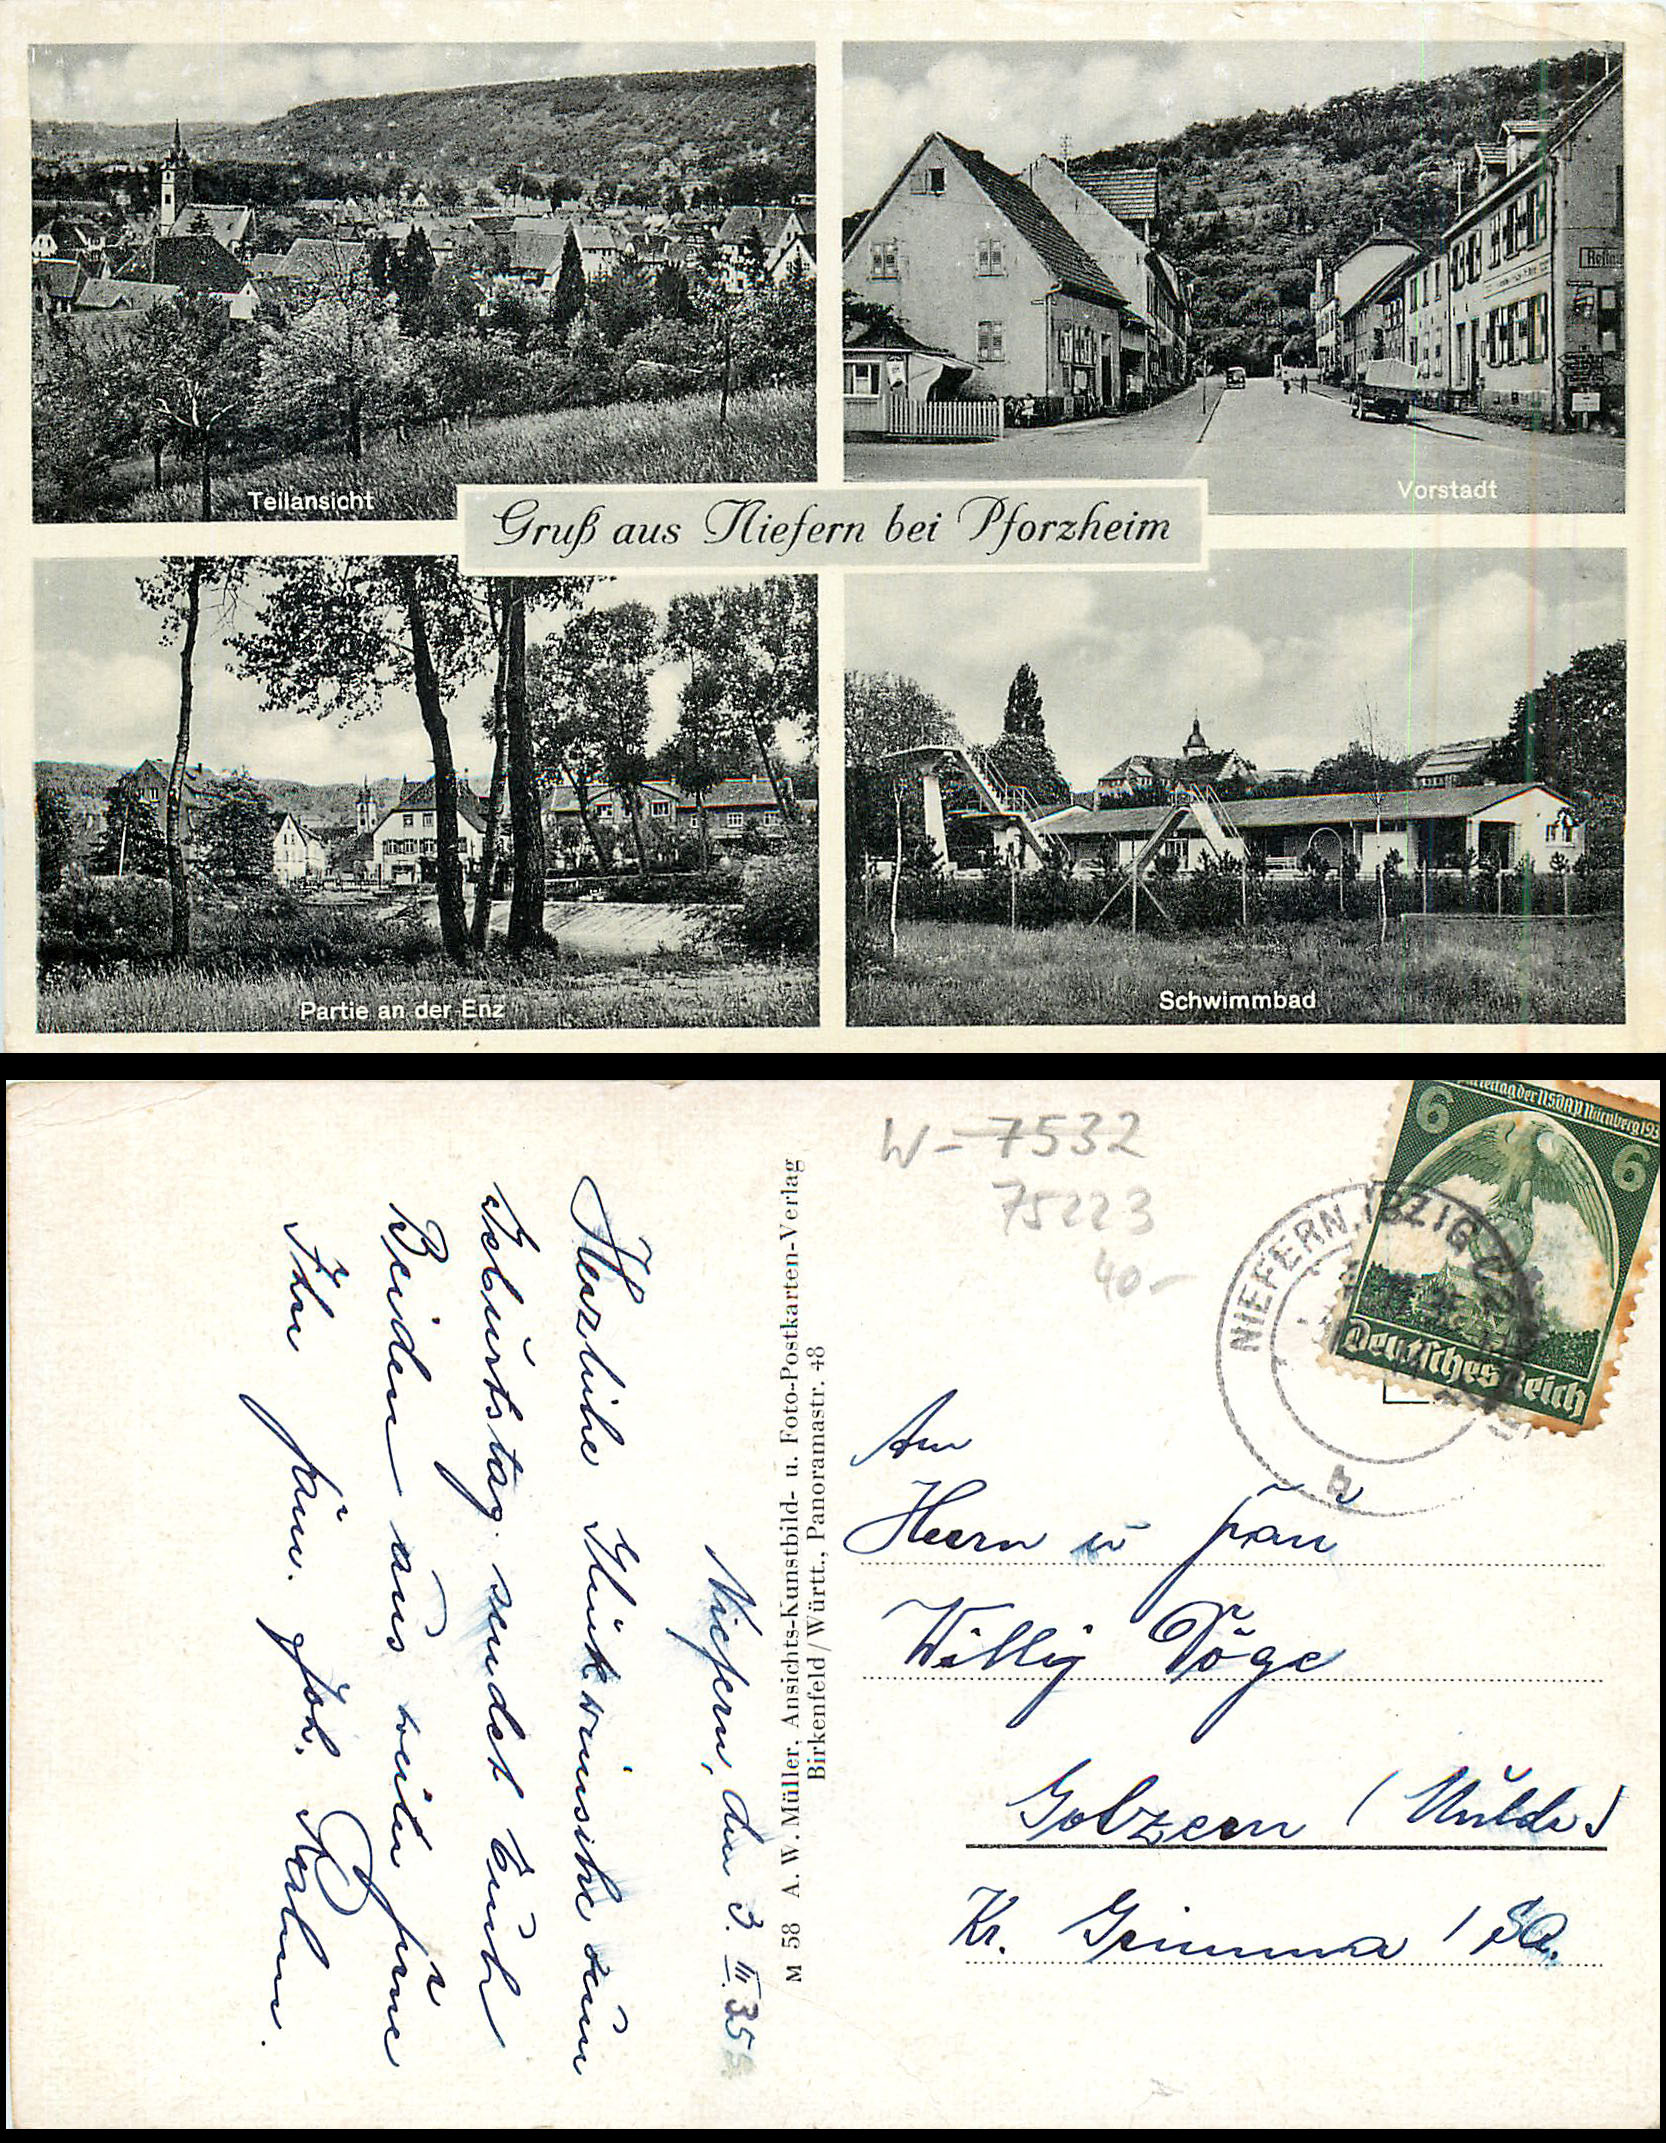 Teilansicht
Vorstadt
Gruß aus Niefern bei Pforzheim
Partie an der Enz
Schwimmbad
W-7532
75223
40-
6
6
Parteitag der NSDAP Nürnberg 193
Deutsches Reich
NIEFERN
b
M 58 A. W. Müller, Ansichts-Kunstbild- u. Foto-Postkarten-Verlag
Birkenfeld/Württ., Panoramastr. 48
Niefern, den 3. III. 35
Herzliche Glückwünsche zum
Geburtstag sendet Euch
Beiden aus weiter Ferne
Ihre Fam. Joh.
An
Herrn u Frau
Willy Döge
Golzern (Mulde)
Kr. Grimma / Sa.